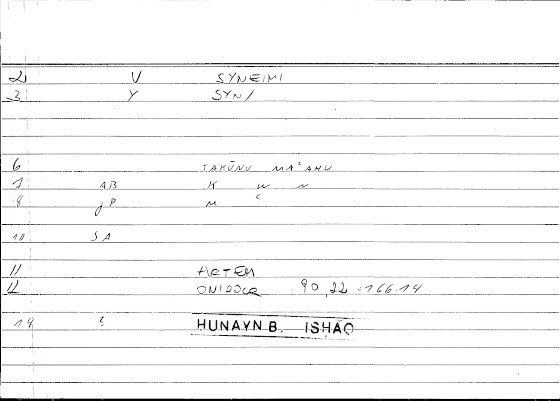 2 V SYNEIMI
3 Y SYN/
6 TAKŪNU MAʿAHU
7 AB K W N
8 JP M ʿ
10 SA
11 ARTEM
12 ONIROCR 90,22 =166.14
14 ʿ HUNAYN B. ISHĀQ